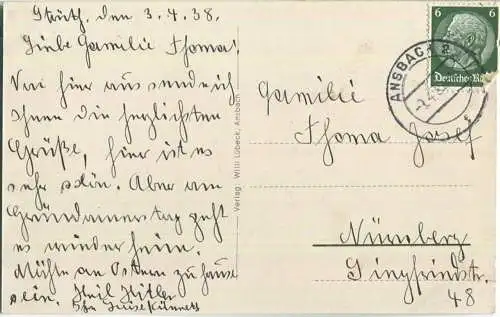 Strüth, den 3.4.38.
Liebe Familie Thoma!
Von hier aus sende ich
Ihnen die herzlichsten
Grüße, hier ist es
sehr schön. Aber am
Gründonnerstag geht
es wieder heim.
Möchte an Ostern zu hause
sein. Heil Hitler
Ihre Luise
Verlag: Willi Lübeck, Ansbach
6 6
Deutsches Re
ANSBACH 2
Familie
Thoma Josef
Nürnberg
Singfriedstr.
48